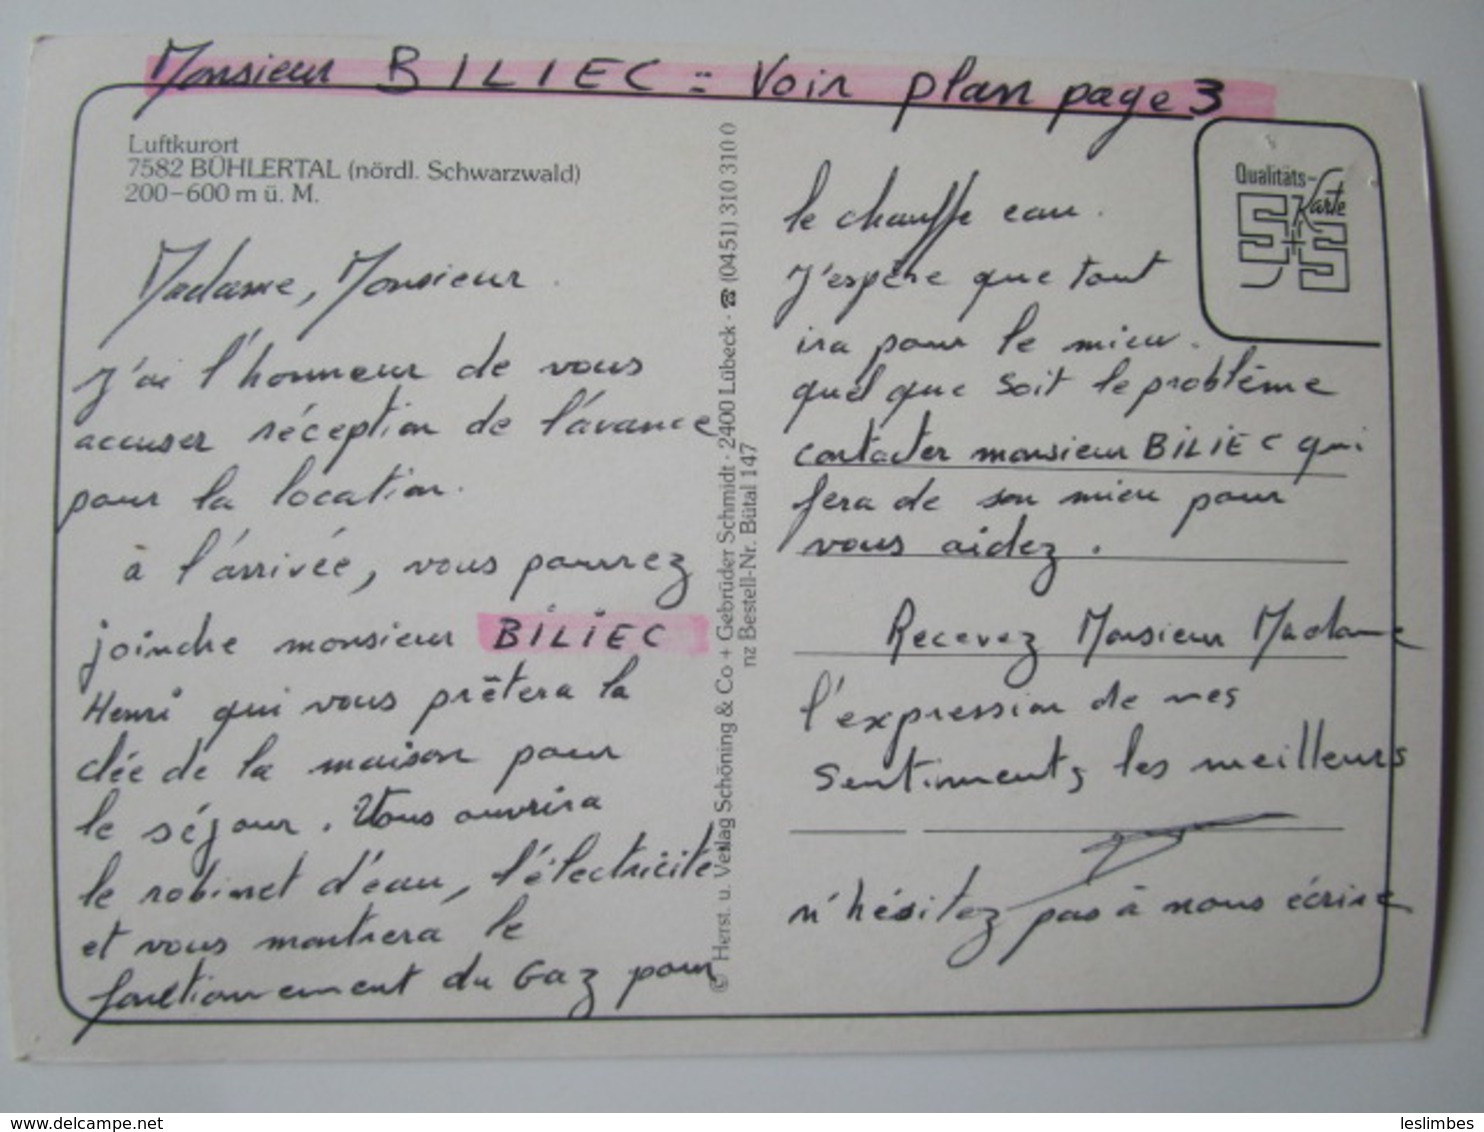 Monsieur BILIEC = Voir plan page 3
Luftkurort
7582 BÜHLERTAL (nördl. Schwarzwald)
200–600 m ü. M.
Madame, Monsieur.
J'ai l'honneur de vous
accuser réception de l'avance
pour la location.
à l'arrivée, vous pourrez
joindre monsieur BILIEC
Henri qui vous prêtera la
clée de la maison pour
le séjour. Vous ouvrira
le robinet d'eau, l'électricité
et vous montrera le
fonctionnement du Gaz pour
© Herst. u. Verlag Schöning & Co + Gebrüder Schmidt · 2400 Lübeck · ☎ (0451) 310 310 0
nz Bestell-Nr. Bütal 147
Qualitäts-
Karte
S+S
le chauffe eau.
J'espère que tout
ira pour le mieux.
quel que soit le problème
contacter monsieur BILIEC qui
fera de son mieu pour
vous aidez.
Recevez Monsieur Madame
l'expression de mes
sentiments les meilleurs
n'hésitez pas à nous écrire
leslimbes